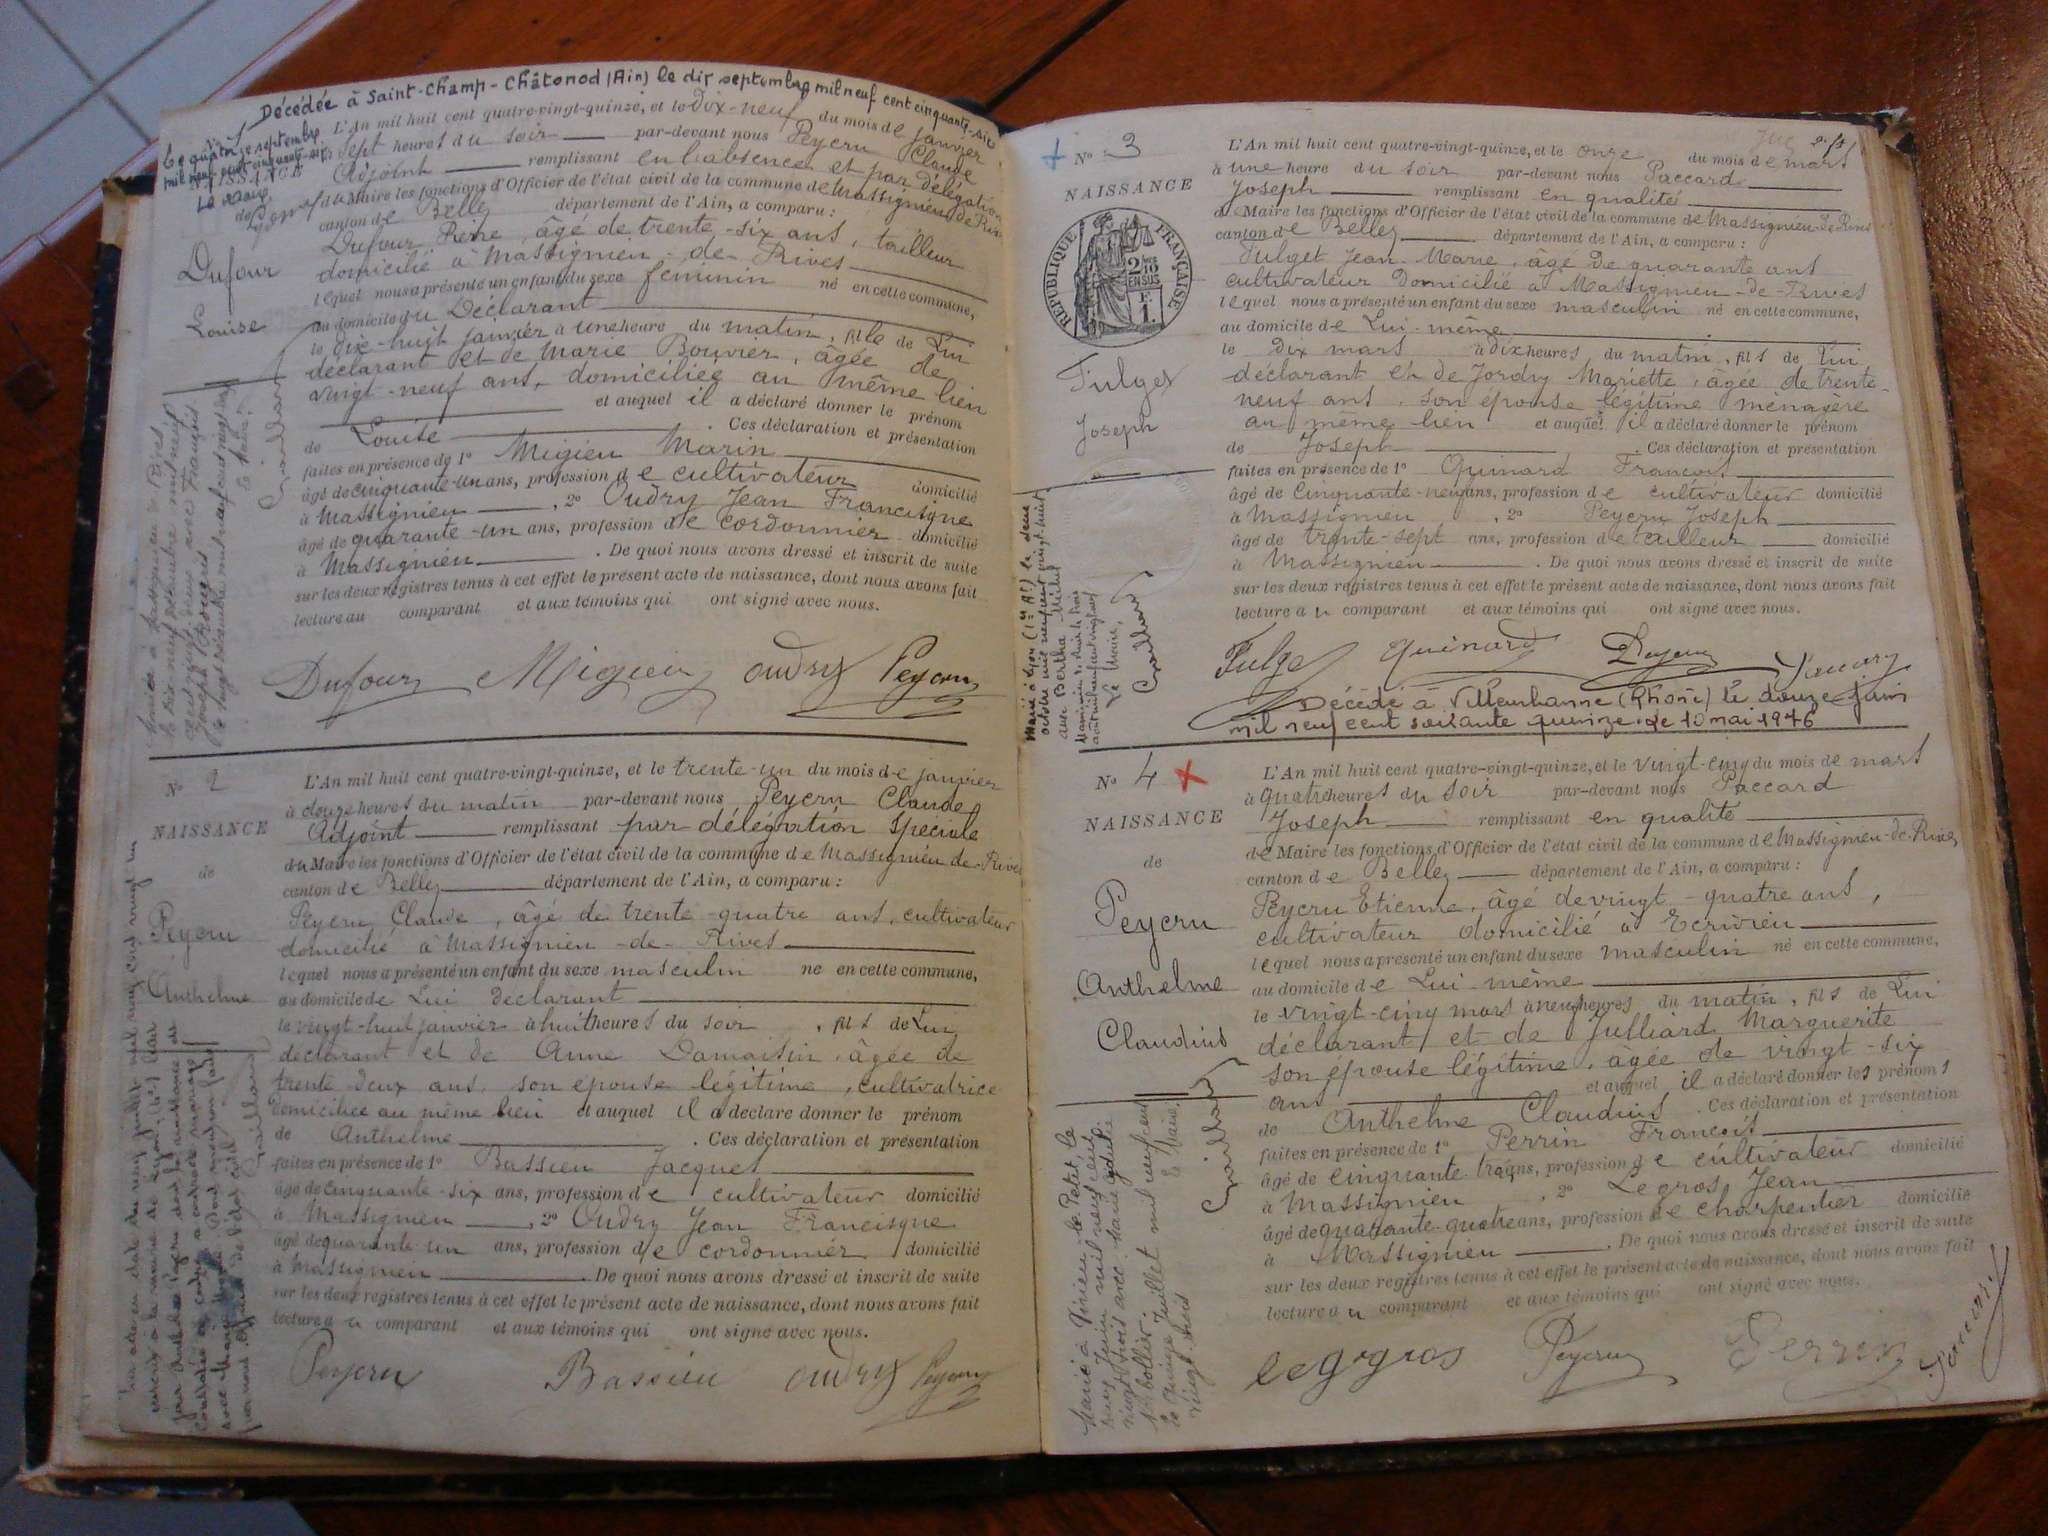 Décédée à Saint-Champ-Châtonod (Ain) le dix septembre mil neuf cent cinquante-six
le quinze septembre
mil neuf cent cinquante-six
Le Maire
NAISSANCE
de
Dufour
Louise
L'An mil huit cent quatre-vingt-quinze, et le Dix-neuf du mois de janvier
à sept heures du soir par-devant nous Peycru Claude
Adjoint remplissant en l'absence et par délégation
du Maire les fonctions d'Officier de l'état civil de la commune de Massignieu de Rives
canton de Belley département de l'Ain, a comparu :
Dufour Pierre, âgé de trente-six ans, tailleur
domicilié à Massignieu-de-Rives
lequel nous a présenté un enfant du sexe féminin né en cette commune,
au domicile du Déclarant
le dix-huit janvier à une heure du matin, fille de Lui
déclarant et de Marie Bouvier, âgée de
vingt-neuf ans, domiciliée au même lieu
et auquel il a déclaré donner le prénom
de Louise . Ces déclaration et présentation
faites en présence de 1° Migieu Marin
âgé de cinquante-un ans, profession de cultivateur domicilié
à Massignieu , 2° Oudry Jean Francisque
âgé de quarante-un ans, profession de cordonnier domicilié
à Massignieu . De quoi nous avons dressé et inscrit de suite
sur les deux registres tenus à cet effet le présent acte de naissance, dont nous avons fait
lecture au comparant et aux témoins qui ont signé avec nous.
Dufour Migieu Oudry Peycru
N° 2
NAISSANCE
de
Peycru
Anthelme
L'An mil huit cent quatre-vingt-quinze, et le trente-un du mois de janvier
à douze heures du matin par-devant nous Peycru Claude
Adjoint remplissant par délégation spéciale
du Maire les fonctions d'Officier de l'état civil de la commune de Massignieu-de-Rives
canton de Belley département de l'Ain, a comparu :
Peycru Claude, âgé de trente-quatre ans, cultivateur
domicilié à Massignieu-de-Rives
lequel nous a présenté un enfant du sexe masculin né en cette commune,
au domicile de Lui déclarant
le vingt-huit janvier à huit heures du soir, fils de Lui
déclarant et de Anne Damaisin, âgée de
trente deux ans, son épouse légitime, cultivatrice
domiciliée au même lieu et auquel il a déclaré donner le prénom
de Anthelme . Ces déclaration et présentation
faites en présence de 1° Bassieu Jacques
âgé de cinquante-six ans, profession de cultivateur domicilié
à Massignieu , 2° Oudry Jean Francisque
âgé de quarante un ans, profession de cordonnier domicilié
à Massignieu . De quoi nous avons dressé et inscrit de suite
sur les deux registres tenus à cet effet le présent acte de naissance, dont nous avons fait
lecture au comparant et aux témoins qui ont signé avec nous.
Peycru Bassieu Oudry Peycru
N° 3
NAISSANCE
RÉPUBLIQUE FRANÇAISE
2/10 EN SUS
F. 1.
Fulget
Joseph
L'An mil huit cent quatre-vingt-quinze, et le onze du mois de mars
à une heure du soir par-devant nous Paccard
Joseph remplissant en qualité
de Maire les fonctions d'Officier de l'état civil de la commune de Massignieu de Rives
canton de Belley département de l'Ain, a comparu :
Fulget Jean-Marie, âgé de quarante ans
cultivateur domicilié à Massignieu-de-Rives
lequel nous a présenté un enfant du sexe masculin né en cette commune,
au domicile de Lui-même
le dix mars à dix heures du matin, fils de Lui
déclarant et de Jordry Mariette, âgée de trente-
neuf ans, son épouse légitime ménagère
au même lieu et auquel il a déclaré donner le prénom
de Joseph . Ces déclaration et présentation
faites en présence de 1° Quinard François
âgé de Cinquante-neuf ans, profession de cultivateur domicilié
à Massignieu , 2° Peycru Joseph
âgé de trente-sept ans, profession de domicilié
à Massignieu . De quoi nous avons dressé et inscrit de suite
sur les deux registres tenus à cet effet le présent acte de naissance, dont nous avons fait
lecture au comparant et aux témoins qui ont signé avec nous.
Fulget Quinard Peycru Paccard
Décédé à Villeurbanne (Rhône) le douze juin
mil neuf cent soixante quinze. Le 10 mai 1976
Marié à Lyon (1er Ar.) le deux
octobre mil neuf cent vingt huit
avec Bertha Michel
Le Maire,
N° 4
NAISSANCE
de
Peycru
Anthelme
Claudius
L'An mil huit cent quatre-vingt-quinze, et le vingt-cinq du mois de mars
à quatre heures du soir par-devant nous Paccard
Joseph remplissant en qualité
de Maire les fonctions d'Officier de l'état civil de la commune de Massignieu-de-Rives
canton de Belley département de l'Ain, a comparu :
Peycru Etienne, âgé de vingt-quatre ans,
cultivateur domicilié à Ecrivieu
lequel nous a présenté un enfant du sexe masculin né en cette commune,
au domicile de Lui-même
le vingt-cinq mars à neuf heures du matin, fils de Lui
déclarant et de Julliard Marguerite
son épouse légitime, âgée de vingt-six
ans et auquel il a déclaré donner les prénoms
de Anthelme Claudius . Ces déclaration et présentation
faites en présence de 1° Perrin François
âgé de cinquante trois ans, profession de cultivateur domicilié
à Massignieu , 2° Legros Jean
âgé de quarante-quatre ans, profession de charpentier domicilié
à Massignieu . De quoi nous avons dressé et inscrit de suite
sur les deux registres tenus à cet effet le présent acte de naissance, dont nous avons fait
lecture au comparant et aux témoins qui ont signé avec nous.
Legros Peycru Perrin Paccard